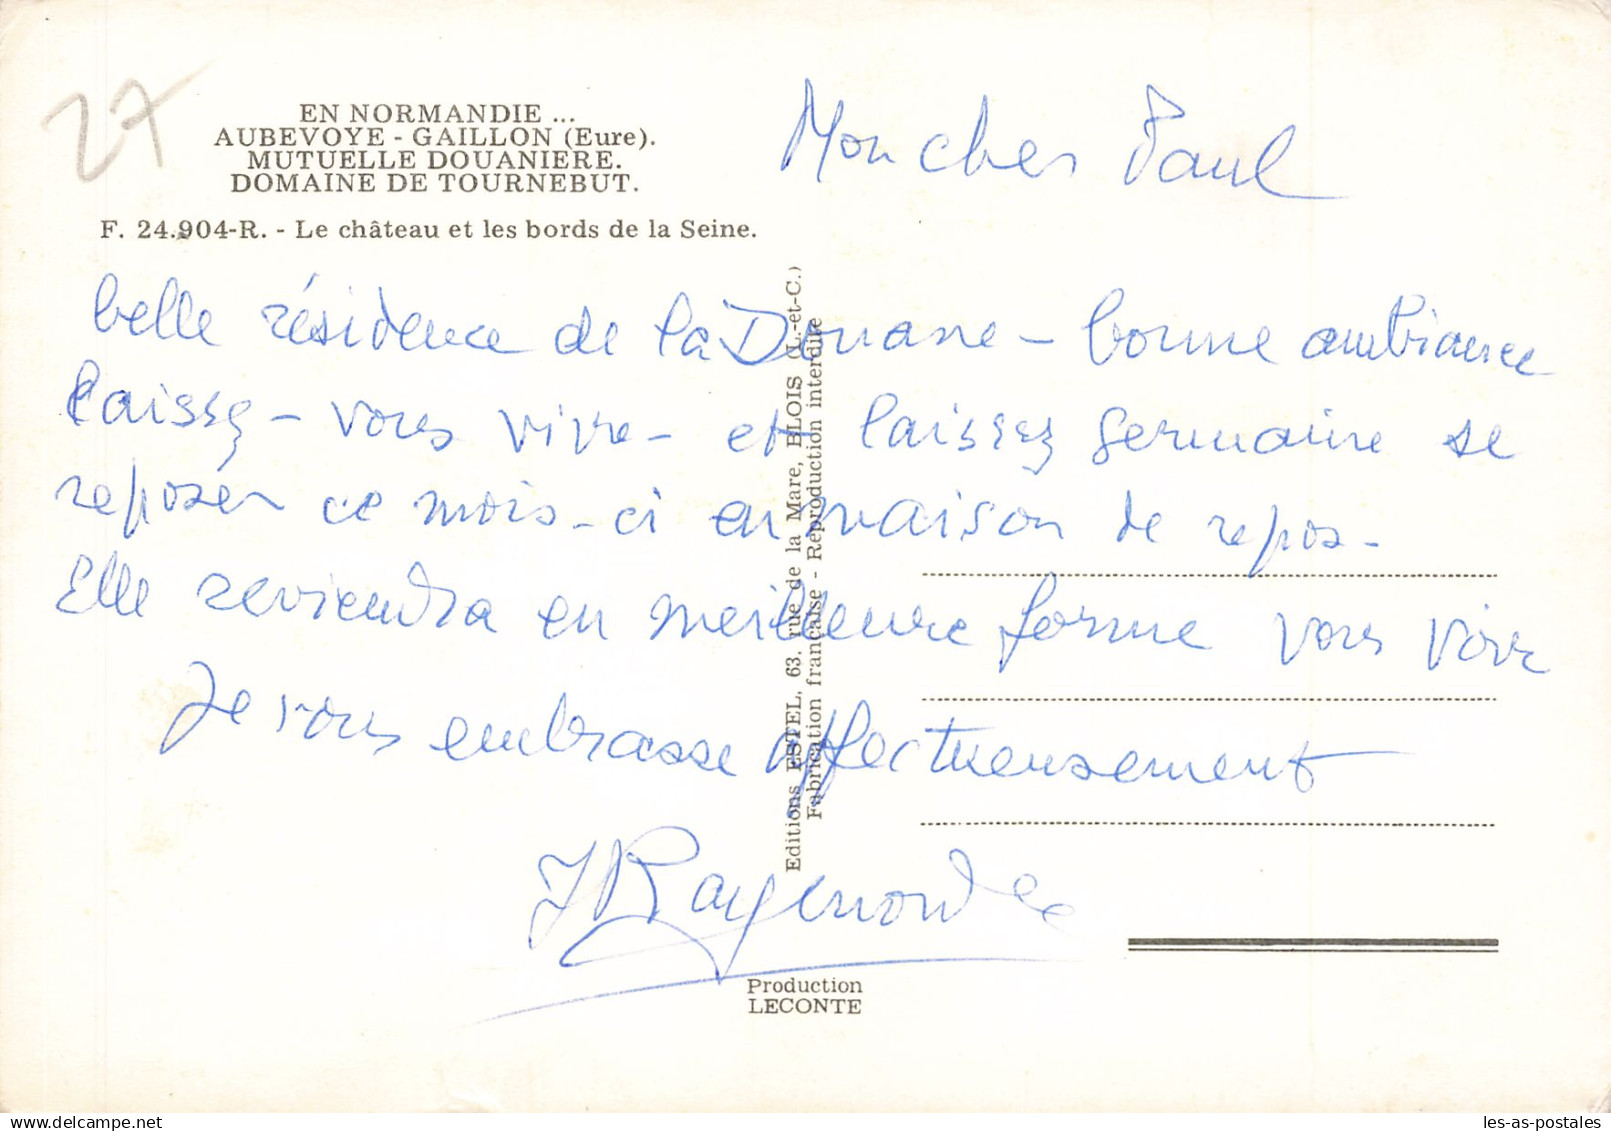 27
EN NORMANDIE ...
AUBEVOYE - GAILLON (Eure).
MUTUELLE DOUANIERE.
DOMAINE DE TOURNEBUT.
F. 24.904-R. - Le château et les bords de la Seine.
Mon cher Paul
belle résidence de la Douane - bonne ambiance
laissez - vous vivre - et laissez Germaine se
reposer ce mois-ci en maison de repos -
Elle reviendra en meilleure forme vous voir
Je vous embrasse affectueusement
Raymonde
Editions ESTEL, 63, rue de la Mare, BLOIS (L.-et-C.)
Fabrication française - Reproduction interdite
Production
LECONTE
delcampe.net
les-as-postales